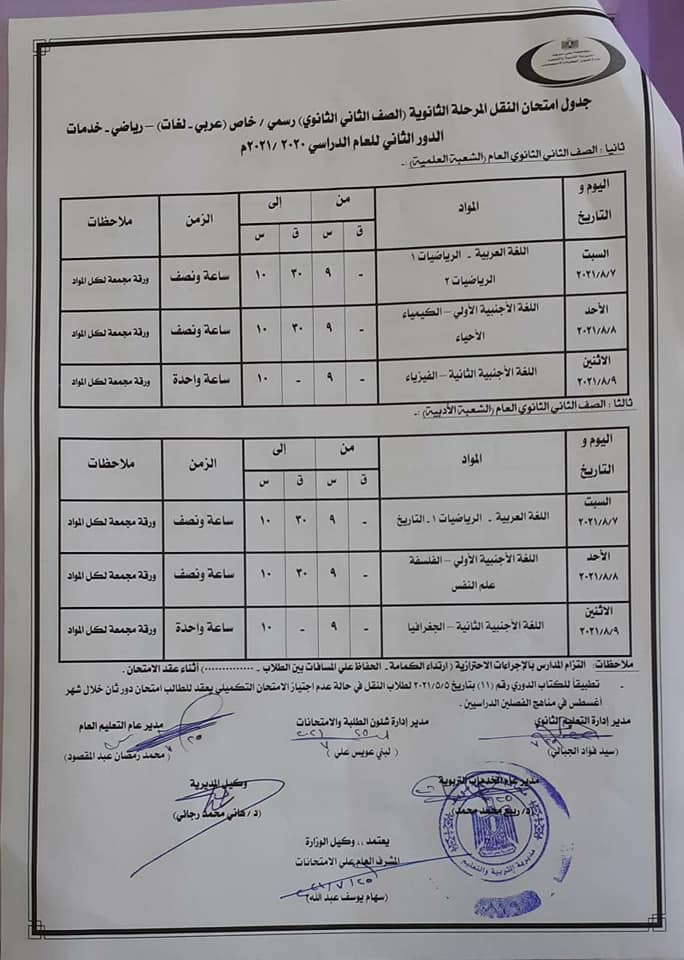 جدول امتحان النقل المرحلة الثانوية (الصف الثاني الثانوي) رسمي / خاص (عربي - لغات) – رياضي - خدمات
الدور الثاني للعام الدراسي ٢٠٢٠ / ٢٠٢١م
ثانيا : الصف الثاني الثانوي العام (الشعبة العلمية) :-
اليوم و التاريخ المواد من إلى الزمن ملاحظات
ق س ق س
السبت ٢٠٢١/٨/٧ اللغة العربية - الرياضيات ١ الرياضيات ٢ - ٩ ٣٠ ١٠ ساعة ونصف ورقة مجمعة لكل المواد
الأحد ٢٠٢١/٨/٨ اللغة الأجنبية الأولي – الكيمياء الأحياء - ٩ ٣٠ ١٠ ساعة ونصف ورقة مجمعة لكل المواد
الاثنين ٢٠٢١/٨/٩ اللغة الأجنبية الثانية – الفيزياء - ٩ - ١٠ ساعة واحدة ورقة مجمعة لكل المواد
ثالثا : الصف الثاني الثانوي العام (الشعبة الأدبية) :-
اليوم و التاريخ المواد من إلى الزمن ملاحظات
ق س ق س
السبت ٢٠٢١/٨/٧ اللغة العربية - الرياضيات ١ - التاريخ - ٩ ٣٠ ١٠ ساعة ونصف ورقة مجمعة لكل المواد
الأحد ٢٠٢١/٨/٨ اللغة الأجنبية الأولي – الفلسفة علم النفس - ٩ ٣٠ ١٠ ساعة ونصف ورقة مجمعة لكل المواد
الاثنين ٢٠٢١/٨/٩ اللغة الأجنبية الثانية – الجغرافيا - ٩ - ١٠ ساعة واحدة ورقة مجمعة لكل المواد
ملاحظات : التزام المدارس بالإجراءات الاحترازية ( ارتداء الكمامة - الحفاظ علي المسافات بين الطلاب - ..............) أثناء عقد الامتحان .
- تطبيقاً للكتاب الدوري رقم (١١) بتاريخ ٢٠٢١/٥/٥ لطلاب النقل في حالة عدم اجتياز الامتحان التكميلي يعقد للطالب امتحان دور ثان خلال شهر
أغسطس في مناهج الفصلين الدراسيين .
مدير إدارة التعليم الثانوي مدير إدارة شئون الطلبة والامتحانات مدير عام التعليم العام
(سيد فؤاد الجبالي) (لبني عويس علي) (محمد رمضان عبد المقصود)
مدير عام الخدمات التربوية وكيل المديرية
(د/ ربيع محمد محمد) (د/ هاني محمد رجائي)
يعتمد ،، وكيل الوزارة
المشرف العام علي الامتحانات
(سهام يوسف عبد الله)
مديرية التربية والتعليم